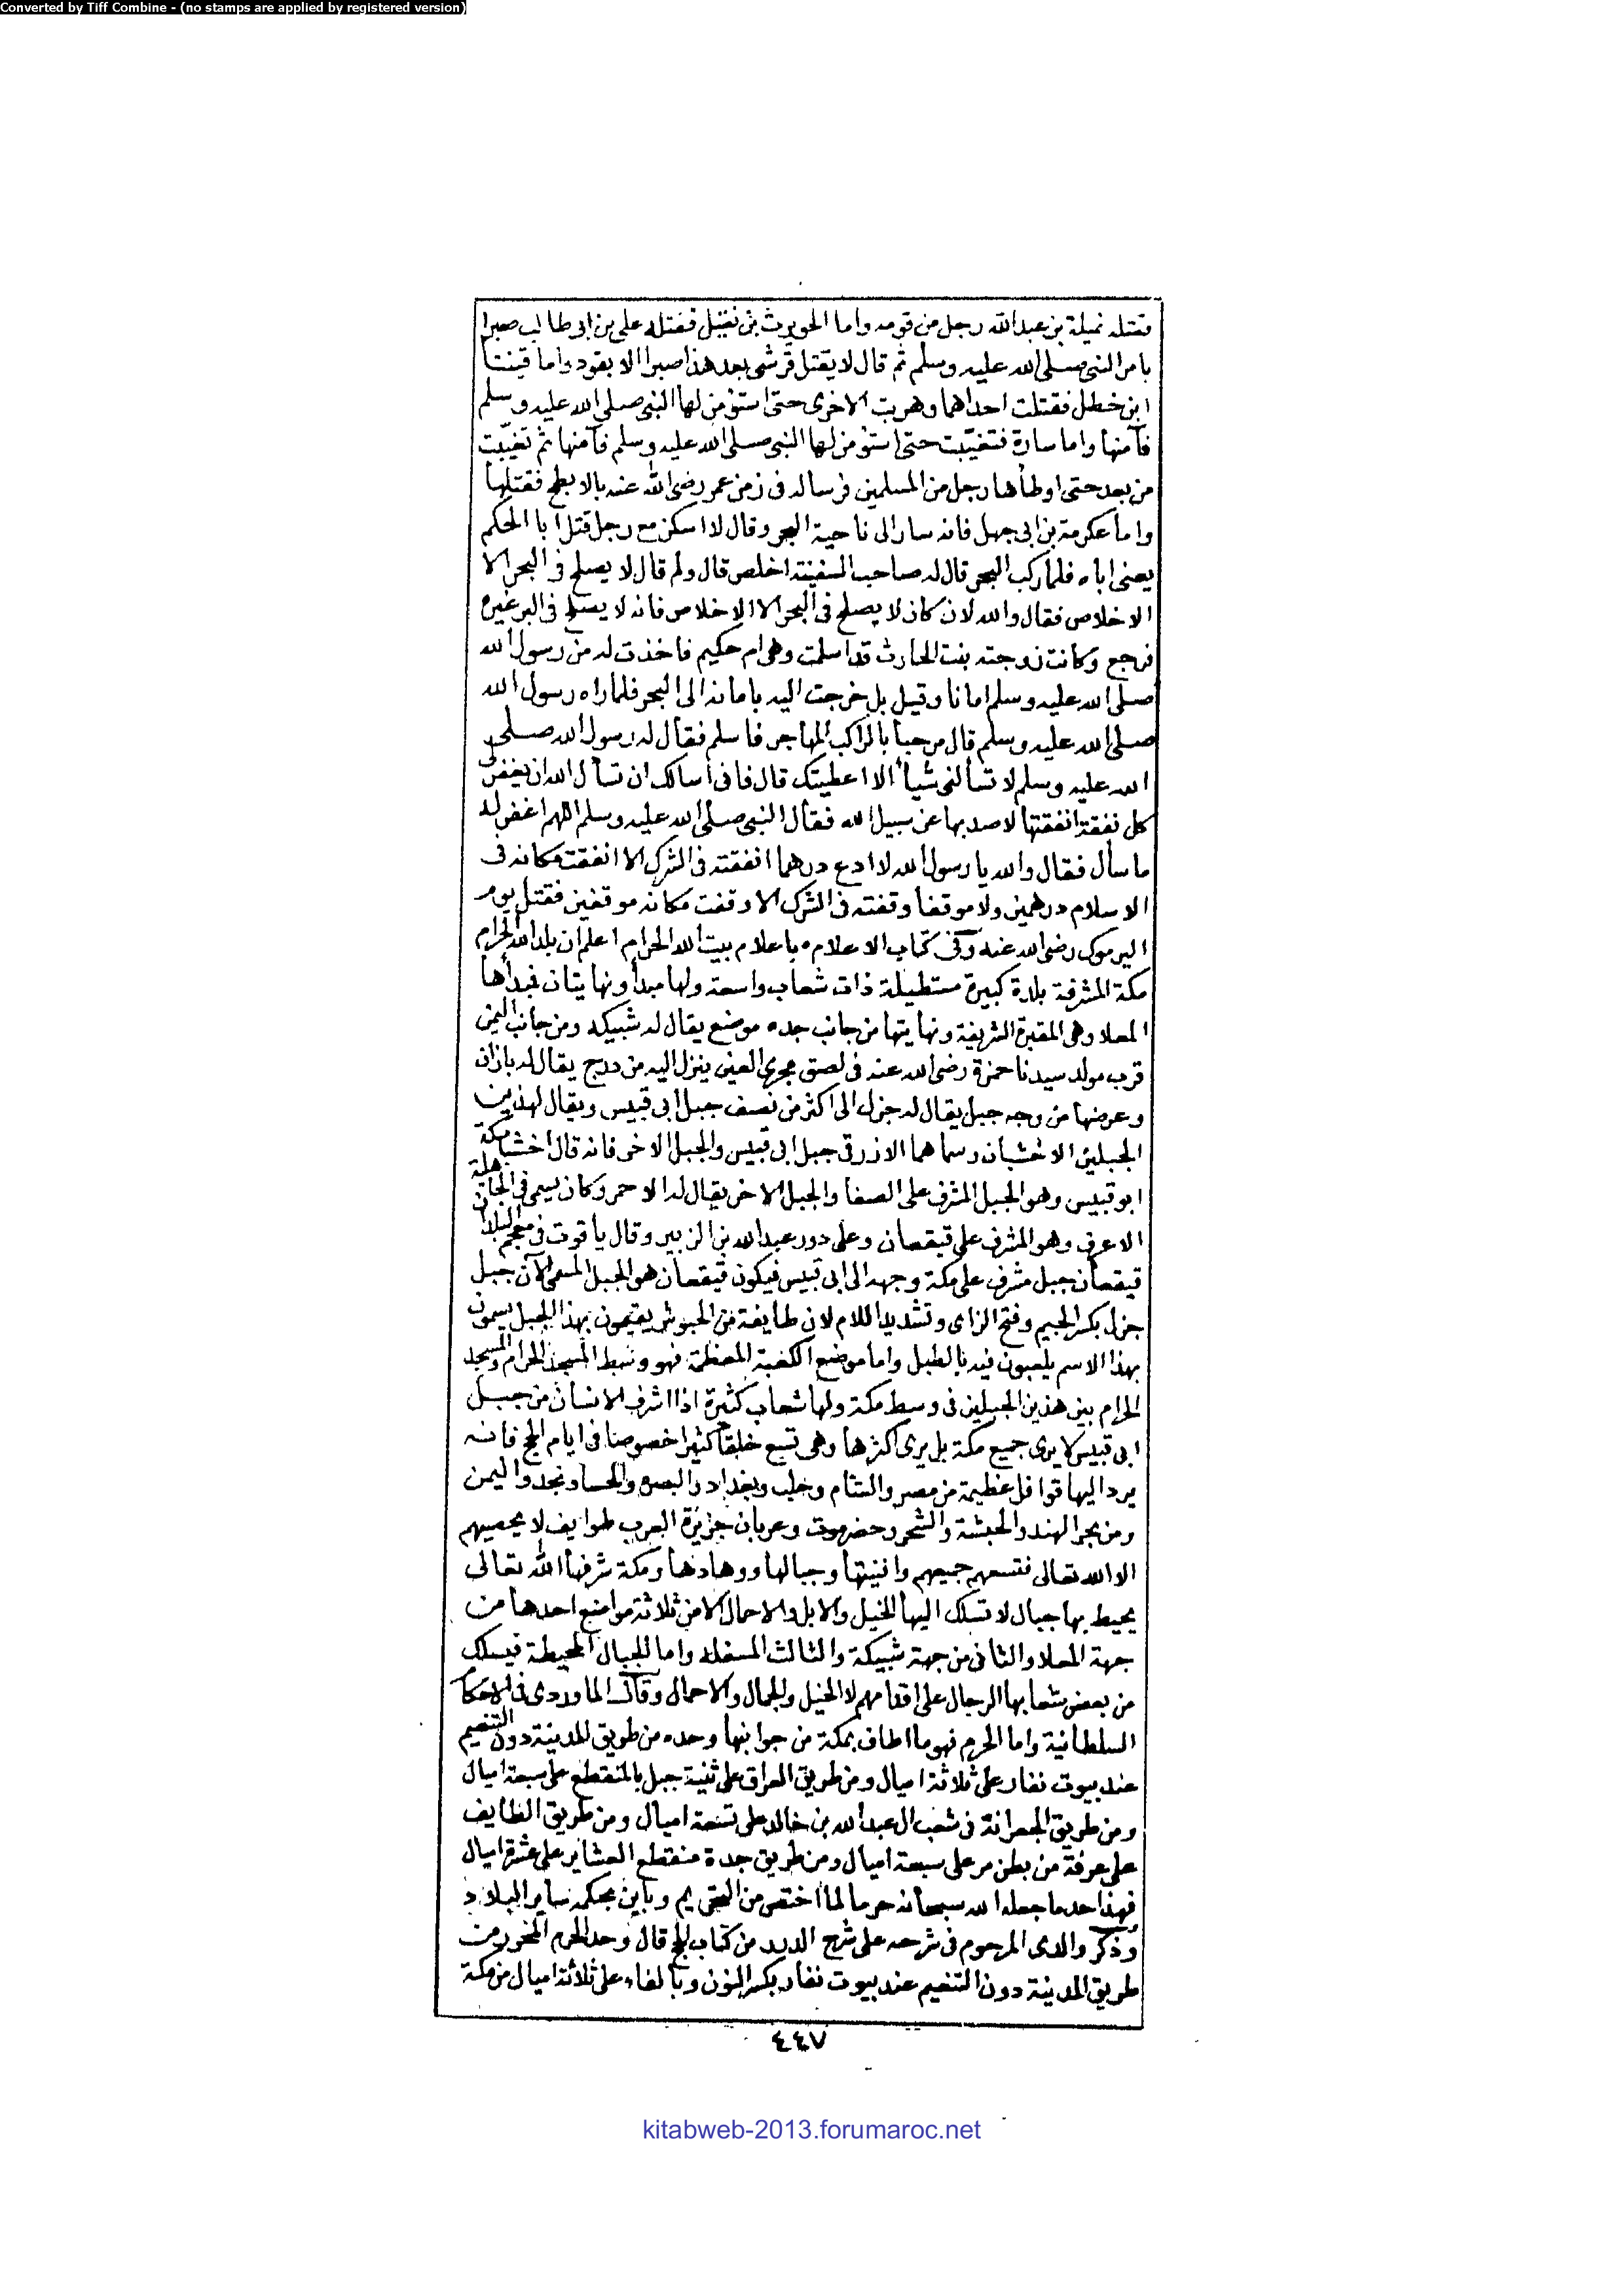 Converted by Tiff Combine - (no stamps are applied by registered version)
فقتله نميلة بن عبد الله رجل من قومه واما الحويرث بن نقيل فقتله على بن ابى طالب صبرا
بامر النبى صلى الله عليه وسلم ثم قال لا يقتل قرشى بعد هذا صبرا الا بقود واما قينتا
ابن خطل فقتلت احداهما وهربت الاخرى حتى استؤمن لها النبى صلى الله عليه وسلم
فآمنها واما سارة فتغيّبت حتى استؤمن لها النبى صلى الله عليه وسلم فآمنها ثم تغيّبت
من بعد حتى اوطأها رجل من المسلمين فرسا له فى زمن عمر رضى الله عنه بالابطح فقتلها
واما عكرمة بن ابى جهل فانه سار الى ناحية البحر وقال لا اسكن مع رجل قتل ابا الحكم
يعنى اباه فلما ركب البحر قال له صاحب السفينة اخلص قال ولم قال لا يصلح فى البحر الا
الاخلاص فقال والله لان كان لا يصلح فى البحر الا الاخلاص فانه لا يصلح فى البر غيره
فرجع وكانت زوجته بنت الحارث قد اسلمت وهى ام حكيم فاخذت له من رسول الله
صلى الله عليه وسلم امانا وقيل بل خرجت اليه بامانه الى البحر فلما راه رسول الله
صلى الله عليه وسلم قال مرحبا بالراكب المهاجر فاسلم فقال له رسول الله صلى
الله عليه وسلم لا تسألنى شيأ الا اعطيتك قال فانى أسالك ان تسأل الله ان يغفر لى
كل نفقة انفقتها لاصد بها عن سبيل الله فقال النبى صلى الله عليه وسلم اللهم اغفر له
ما سأل فقال والله يا رسول الله لا ادع درهما انفقته فى الشرك الا انفقت مكانه فى
الاسلام درهمين ولا موقفا وقفته فى الشرك الا وقفت مكانه موقفين فقتل يوم
اليرموك رضى الله عنه وفى كتاب الاعلام باعلام بيت الله الحرام اعلم ان بلد الله الحرام
مكة المشرفة بلدة كبيرة مستطيلة ذات شعاب واسعة ولها مبدأ ونهايتان فمبدأها
المعلا وهى المقبرة الشريفة ونهايتها من جانب جده موضع يقال له شبيكه ومن جانب اليمن
قرب مولد سيدنا حمزة رضى الله عنه فى لصق مجرى العين ينزل اليه من درج يقال له بازان
وعرضها من وجه جبل يقال له جزل الى اكثر من نصف جبل ابى قبيس ويقال لهذين
الجبلين الاخشبان وسماهما الازرقى جبل ابى قبيس والجبل الاخر فانه قال اخشبا مكة
ابو قبيس وهو الجبل المشرف على الصفا والجبل الاخر يقال له الاحمر وكان يسمى فى الجاهلة
الاعرف وهو المشرف على قيقعان وعلى دور عبد الله بن الزبير وقال ياقوت فى معجم البلدان
قيقعان جبل مشرف على مكة وجهه الى ابى قبيس فيكون قيقعان هو الجبل المسمى الآن جبل
جزل بكسر الجيم وفتح الزاى وتشديد اللام لان طايفة من الحبوش يقيمون بهذا الجبل يسمون
بهذا الاسم يلعبون فيه بالطبل واما موضع الكعبة المعظمة فهو وسط المسجد الحرام والمسجد
الحرام بين هذين الجبلين فى وسط مكة ولها شعاب كثيرة اذا اشرف الانسان من جبل
ابى قبيس لا يرى جميع مكة بل يرى اكثرها وهى تسع خلقا كثيرا خصوصا فى ايام الحج فانه
يرد اليها قوافل عظيمة من مصر والشام وحلب وبغداد والبصره والحسا ونجد واليمن
ومن بحر الهند والحبشة والشحر وحضرموت وعربان جزيرة العرب طوايف لا يحصيهم
الا الله تعالى فتسعهم جميعهم وافنيتها وجبالها ووهادها ومكة شرفها الله تعالى
يحيط بها جبال لا تسلك اليها الخيل والابل والاحمال الا من ثلاثة مواضع احدها من
جهة المعلا والثانى من جهة شبيكة والثالث المسفله واما الجبال المحيطة فيسلك
من بعض شعابها الرجال على اقدامهم لا الخيل والجمال والاحمال وقال الماوردى فى الاحكا
السلطانية واما الحرم فهو ما اطاف بمكة من جوانبها وحده من طريق المدينة دون التنعيم
عند بيوت نفار على ثلاثة اميال ومن طريق العراق على ثنية جبل بالمنقطع على سبعة اميال
ومن طريق الجعرانة فى شعب ال عبد الله بن خالد على تسعة اميال ومن طريق الطايف
على عرفة من بطن مر على سبعة اميال ومن طريق جدة منقطع العشاير على عشرة اميال
فهذا حد ما جعله الله سبحانه حرما لما اختص من التحريم وباين بحكمه ساير البلاد
وذكر والدى المرحوم فى شرحه على شرح الدرر من كتاب الحج قال وحد الحرم من
طريق المدينة دون التنعيم عند بيوت نفار بكسر النون وبالفاء على ثلاثة اميال من مكة
٤٤٧
kitabweb-2013.forumaroc.net